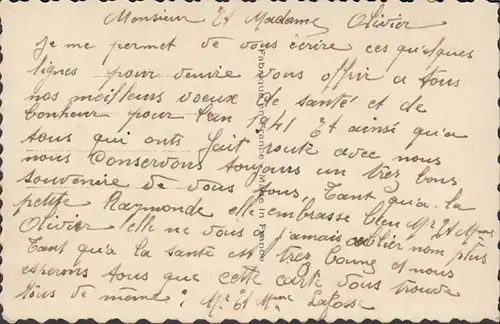 Monsieur Et Madame Olivier
Je me permet de vous écrire ces quelques
lignes pour vous offrir a tous
nos meilleurs voeux de santé et de
bonheur pour l'an 1941 Et ainsi qu'a
tous qui onts fait route avec nous
nous conservons toujours un trez bons
souvenire de vous tous, Tant qu'a la
petite Raymonde elle embrasse bien Mr Et Mme
Olivier elle ne vous a jamais oublier nom plus
Tant qu'a la santé est trez bonne et nous
esperons tous que cette carte vous trouve
tous de même. Mr Et Mme Lafosse
Fabrication Française Made in France